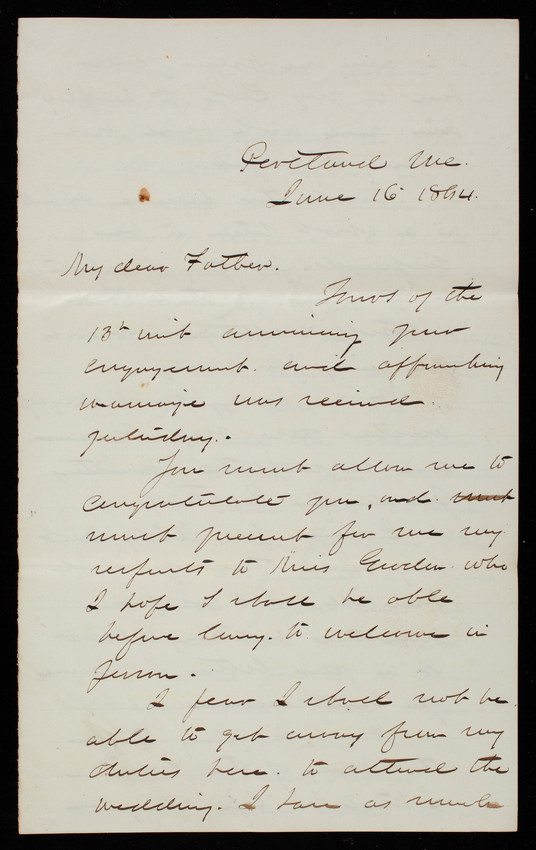 Portland Me.
June 16 1864.
My dear Father.
Yours of the
13th inst announcing your
engagement and approaching
marriage was received
yesterday.
You must allow me to
congratulate you, and must
must present for me my
respects to Miss who
I hope I shall be able
before long to welcome in
person.
I fear I shall not be
able to get away from my
duties here. to attend the
wedding. I have as much